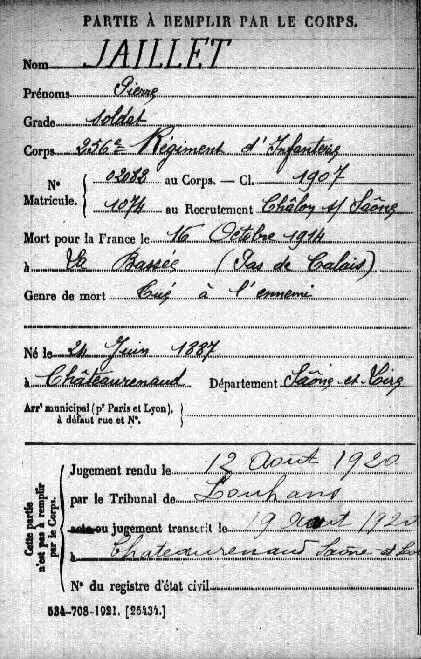 PARTIE À REMPLIR PAR LE CORPS.
Nom JAILLET
Prénoms Pierre
Grade soldat
Corps 256e Régiment d'Infanterie
N° Matricule. { 02033 au Corps. — Cl. 1907
1074 au Recrutement Châlon s/ Saône
Mort pour la France le 16 Octobre 1914
à La Bassée (Pas de Calais)
Genre de mort Tué à l'ennemi
Né le 24 Juin 1887
à Châteaurenaud Département Saône-et-Loire
Arrt municipal (pr Paris et Lyon), à défaut rue et N°. }
Cette partie n'est pas à remplir par le Corps.
Jugement rendu le 12 Aout 1920
par le Tribunal de Louhans
acte ou jugement transcrit le 19 Aout 1920
à Chateaurenaud Saône et Lo
N° du registre d'état civil
534-708-1921. [26434.]